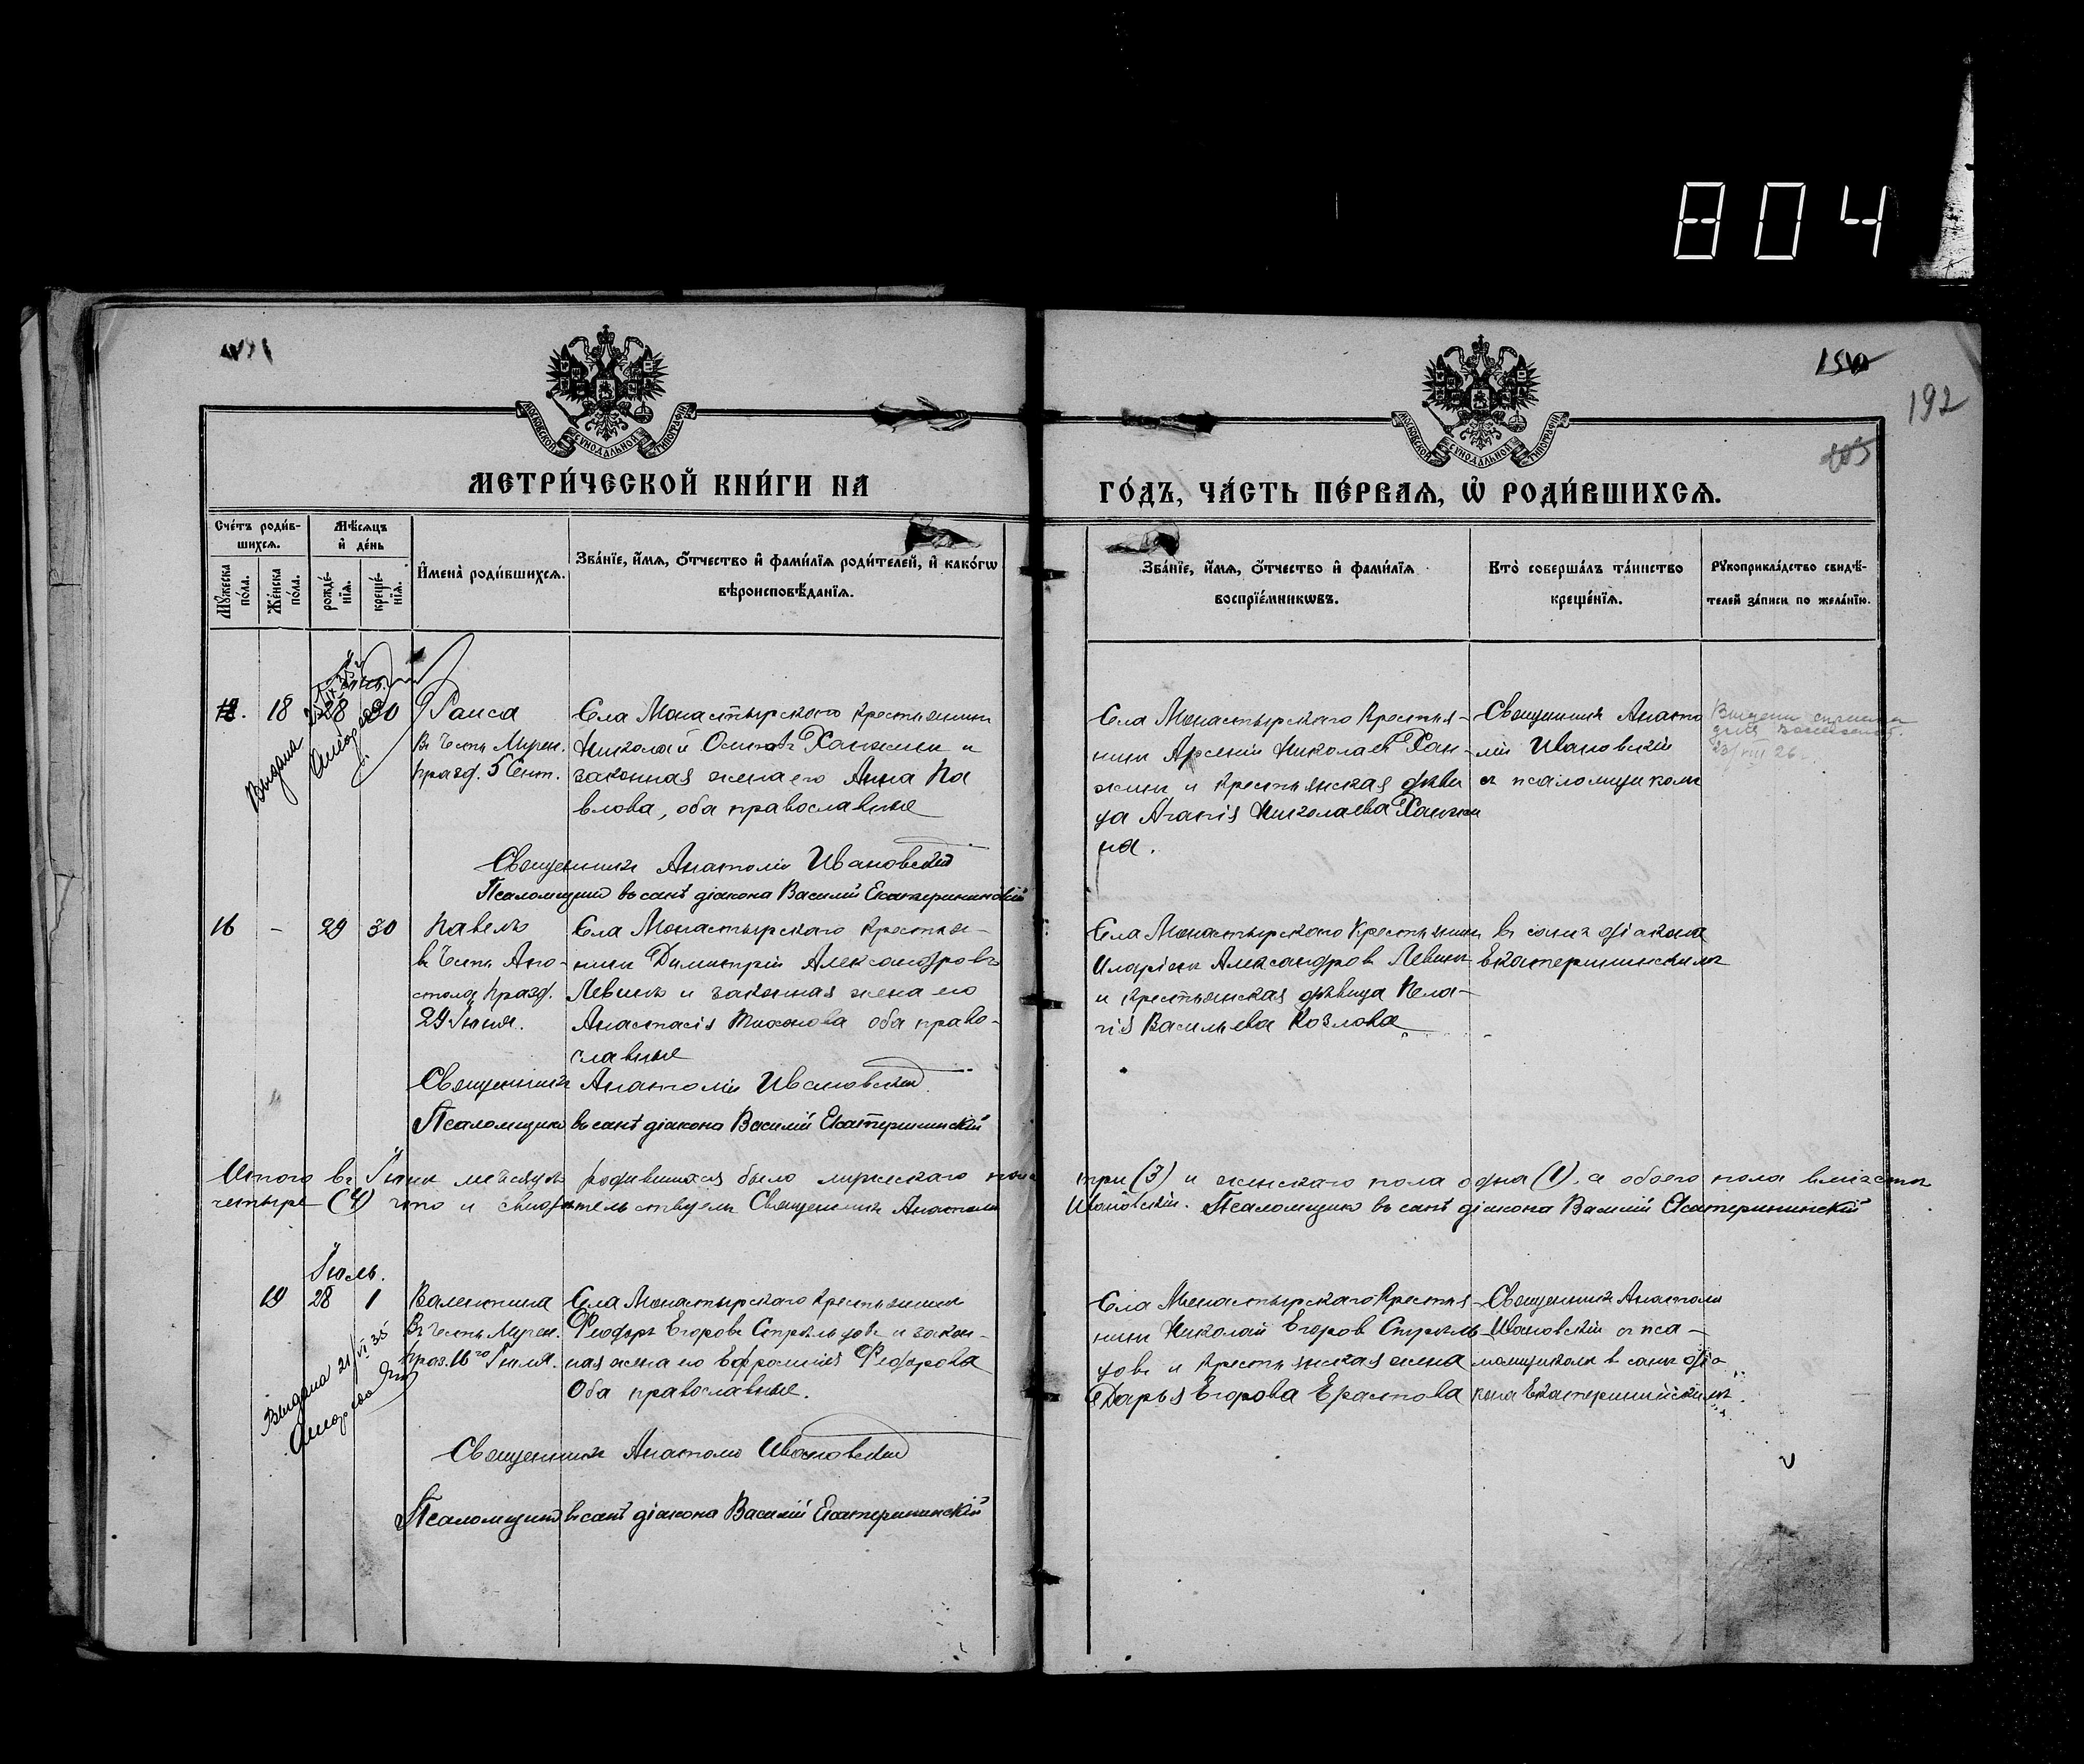 804
192
МОСКОВСКОЙ СѴНОДАЛЬНОЙ ТИПОГРАФІИ
МОСКОВСКОЙ СѴНОДАЛЬНОЙ ТИПОГРАФІИ
МЕТРИ́ЧЕСКОЙ КНИ́ГИ НА
ГО́ДЪ, ЧА́СТЬ ПЕ́РВАѦ, Ѡ҆ РОДИ́ВШИХСѦ.
Сче́тъ роди́в-
шихсѧ.
Мѣ́сѧцъ
и҆ де́нь
Мꙋ́жеска
по́ла.
Же́нска
по́ла.
рожде́-
нїѧ.
креще́-
нїѧ.
И҆мена̀ роди́вшихсѧ.
Зва́нїе, и҆́мѧ, ѻ҆́тчество и҆ фами́лїѧ роди́телей, и҆ како́гѡ
вѣроисповѣ́данїѧ.
Зва́нїе, и҆́мѧ, ѻ҆́тчество и҆ фами́лїѧ
воспрїе́мникѡвъ.
Кто̀ соверша́лъ та́инство
креще́нїѧ.
Рꙋкоприкла́дство свидѣ́-
телей за́писи по жела́нїю.
18 28 30 Раиса
въ честь Мучен.
празд. 5 Сент.
Села Монастырскаго крестьянинъ
Николай Осиповъ Ханжинъ и
законная жена его Анна Па
влова, оба православные
Села Монастырскаго Крестья-
нинъ Арсений Николаевъ Хан-
жинъ и крестьянская дѣви
ца Агапія Николаева Ханжи
на.
Священникъ Анато
лій Ивановскій
съ псаломщикомъ
Выдана
23/VIII 26 г.
Священникъ Анатолій Ивановскій
Псаломщикъ въ санѣ діакона Василій Екатерининскій
16 - 29 30 Павелъ
въ честь Апо-
стола празд.
29 Іюня.
Села Монастырскаго Крестья-
нинъ Димитрій Александровъ
Левинъ и законная жена его
Анастасія Тихонова оба право-
славные
Села Монастырскаго Крестьянинъ
Иларіонъ Александров Левинъ
и крестьянская дѣвица Пела-
гія Васильева Козлова
въ санѣ діакона
Екатерининскимъ
Священникъ Анатолій Ивановскій
Псаломщикъ въ санѣ діакона Василій Екатерининскій
Итого въ Іюнѣ мѣсяцѣ родившихся было мужескаго пола три (3) и женскаго пола одна (1), а обоего пола вмѣстѣ
четыре (4) что и свидѣтельствуемъ Священникъ Анатолій Ивановскій. Псаломщикъ въ санѣ діакона Василій Екатерининскій
Іюль.
19 28 1 Валентина
въ честь Мучен.
праз. 16го Іюля.
Села Монастырскаго Крестьянинъ
Феодоръ Егоровъ Стрѣльцовъ и закон-
ная жена его Ефросинія Феодорова
Оба православные.
Села Монастырскаго Крестья-
нинъ Николай Егоров Стрѣль-
цовъ и Крестьянская жена
Дарья Егорова Ерастова
Священникъ Анатолій
Ивановскій съ пса-
ломщикомъ в санѣ діа
кона Екатерининскимъ.
Выдана 21/VI 35
Священникъ Анатолій Ивановскій
Псаломщикъ въ санѣ діакона Василій Екатерининскій